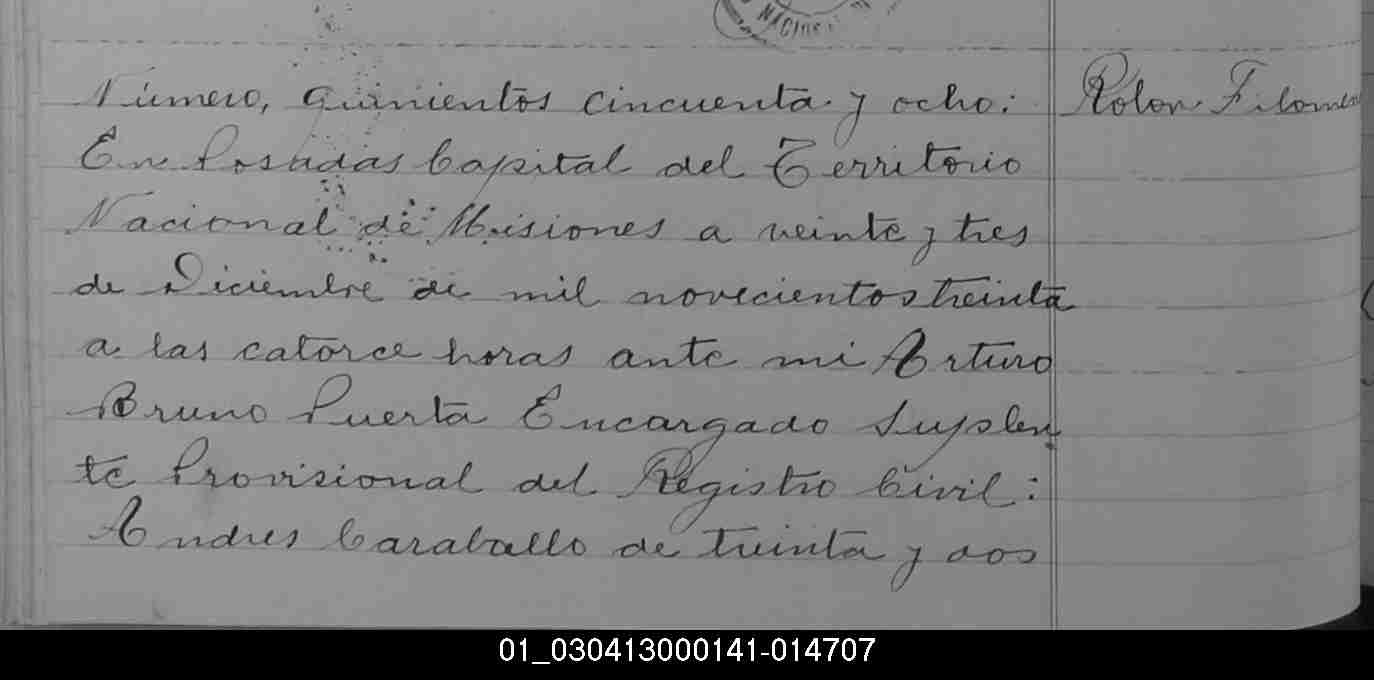 NACIONAL
Número, quinientos cincuenta y ocho:
Rolon Filomen
En Posadas Capital del Territorio
Nacional de Misiones a veinte y tres
de Diciembre de mil novecientos treinta
a las catorce horas ante mi Arturo
Bruno Puerta Encargado Suplen
te Provisional del Registro Civil:
Andres Caraballo de treinta y dos
01_030413000141-014707